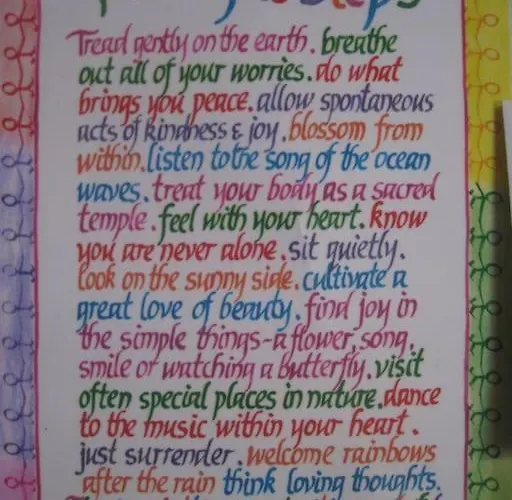 Steps
Tread gently on the earth. breathe
out all of your worries. do what
brings you peace. allow spontaneous
acts of kindness & joy. blossom from
within. listen to the song of the ocean
waves. treat your body as a sacred
temple. feel with your heart. know
you are never alone. sit quietly.
look on the sunny side. cultivate a
great love of beauty. find joy in
the simple things - a flower, song,
smile or watching a butterfly. visit
often special places in nature. dance
to the music within your heart.
just surrender. welcome rainbows
after the rain think loving thoughts.